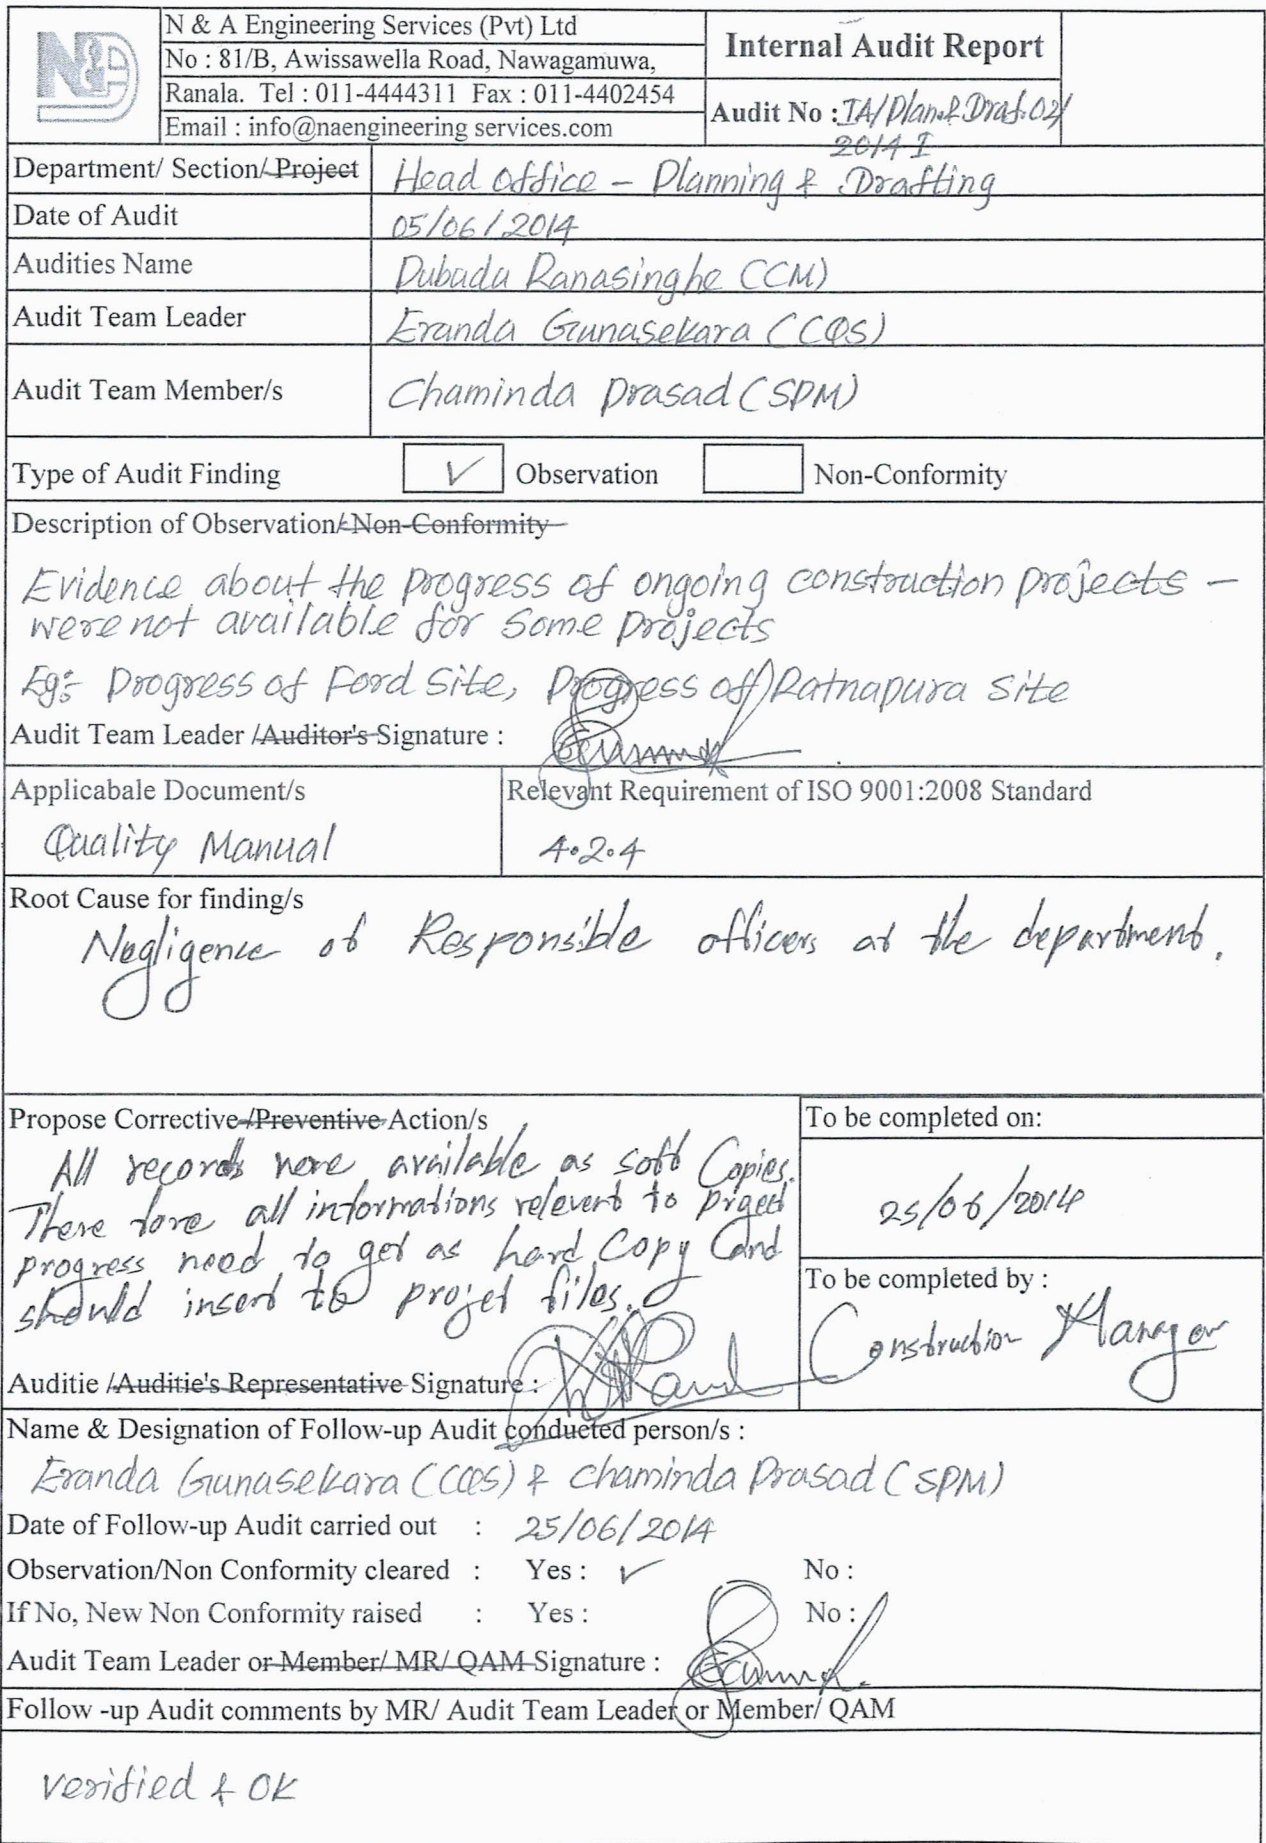 N & A Engineering Services (Pvt) Ltd
No : 81/B, Awissawella Road, Nawagamuwa,
Ranala. Tel : 011-4444311 Fax : 011-4402454
Email : info@naengineering services.com
Internal Audit Report
Audit No : IA/Plan.& Draf.02/
2014 I
Department/ Section/ Project Head office - Planning & Drafting
Date of Audit 05/06/2014
Audities Name Dubadu Ranasinghe (CM)
Audit Team Leader Eranda Gunasekara (CQS)
Audit Team Member/s Chaminda Prasad (SPM)
Type of Audit Finding ✓ Observation Non-Conformity
Description of Observation/ Non-Conformity
Evidence about the progress of ongoing construction projects -
were not available for some projects
Eg:- Progress of Ford Site, Progress off Ratnapura site
Audit Team Leader /Auditor's Signature :
Applicabale Document/s
Quality Manual
Relevant Requirement of ISO 9001:2008 Standard
4.2.4
Root Cause for finding/s
Negligence of Responsible officers at the department.
Propose Corrective /Preventive Action/s
All records were available as soft Copies.
There fore all informations relevent to project
progress need to get as hard Copy and
should insert to projet files.
Auditie /Auditie's Representative Signature :
To be completed on:
25/06/2014
To be completed by :
Construction Manager
Name & Designation of Follow-up Audit conducted person/s :
Eranda Gunasekara (CQS) & Chaminda Prasad (SPM)
Date of Follow-up Audit carried out : 25/06/2014
Observation/Non Conformity cleared : Yes : ✓ No :
If No, New Non Conformity raised : Yes : No :
Audit Team Leader or Member/ MR/ QAM Signature :
Follow -up Audit comments by MR/ Audit Team Leader or Member/ QAM
verified & OK